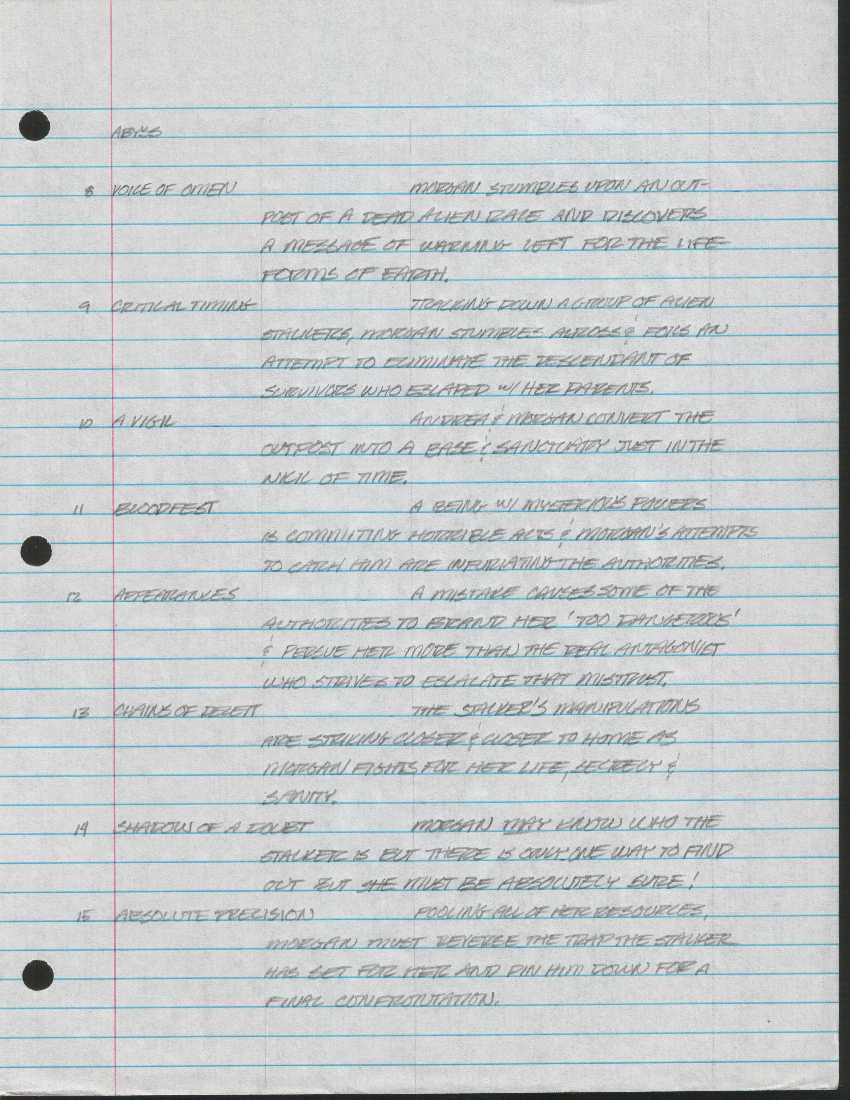 ABYSS
8 VOICE OF OMEN MORGAN STUMBLES UPON AN OUT-
POST OF A DEAD ALIEN RACE AND DISCOVERS
A MESSAGE OF WARNING LEFT FOR THE LIFE-
FORMS OF EARTH.
9 CRITICAL TIMING TRACKING DOWN A GROUP OF ALIEN
STALKERS, MORGAN STUMBLES ACROSS & FOILS AN
ATTEMPT TO ELIMINATE THE DESCENDANT OF
SURVIVORS WHO ESCAPED W/ HER PARENTS.
10 A VIGIL ANDREA & MORGAN CONVERT THE
OUTPOST INTO A BASE & SANCTUARY JUST IN THE
NICK OF TIME.
11 BLOODFEST A BEING W/ MYSTERIOUS POWERS
IS COMMITING HORRIBLE ACTS & MORGAN'S ATTEMPTS
TO CATCH HIM ARE INFURIATING THE AUTHORITIES.
12 APPEARANCES A MISTAKE CAUSES SOME OF THE
AUTHORITIES TO BRAND HER 'TOO DANGEROUS'
& PERSUE HER MORE THAN THE REAL ANTAGONIST
WHO STRIVES TO ESCALATE THAT MISTRUST.
13 CHAINS OF DECEIT THE STALKER'S MANIPULATIONS
ARE STRIKING CLOSER & CLOSER TO HOME AS
MORGAN FIGHTS FOR HER LIFE, SECRECY &
SANITY.
14 SHADOW OF A DOUBT MORGAN MAY KNOW WHO THE
STALKER IS BUT THERE IS ONLY ONE WAY TO FIND
OUT BUT SHE MUST BE ABSOLUTELY SURE!
15 ABSOLUTE PRECISION POOLING ALL OF HER RESOURCES,
MORGAN MUST REVERSE THE TRAP THE STALKER
HAS SET FOR HER AND PIN HIM DOWN FOR A
FINAL CONFRONTATION.